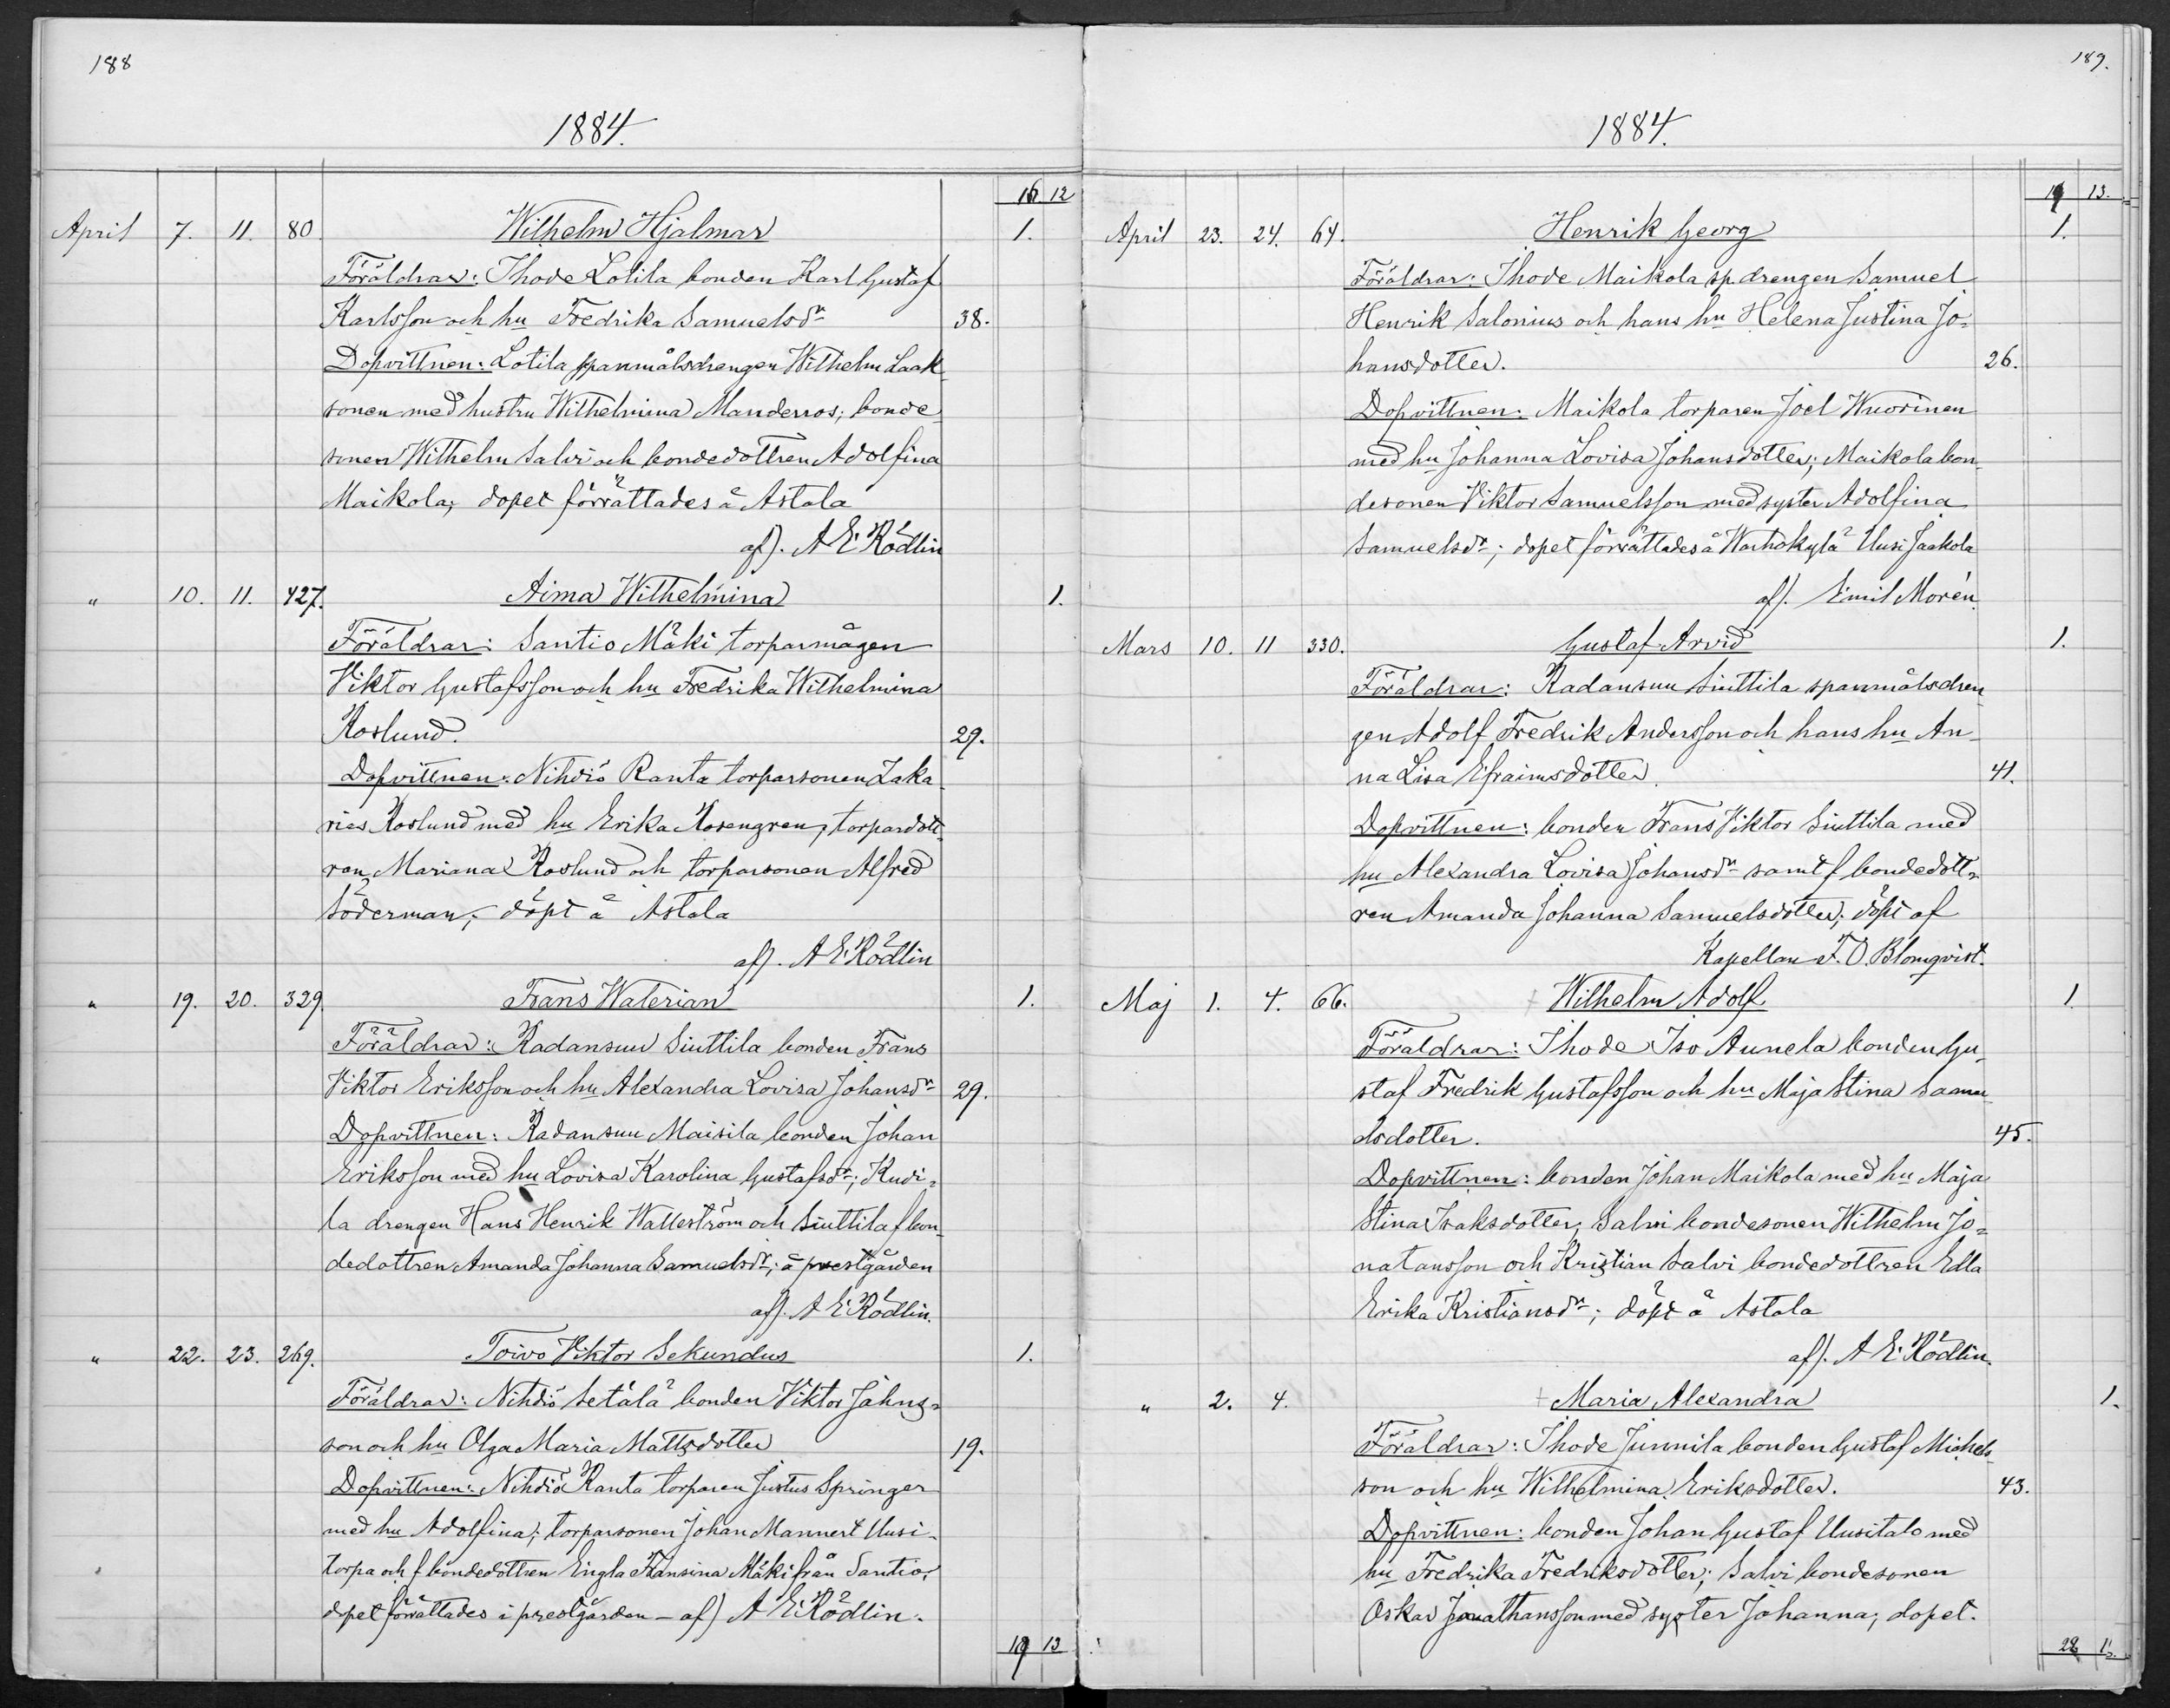 188
1884.
16 12
April 7. 11. 80. Wilhelm Hjalmar 1.
Föräldrar: Ihode Lotila bonden Karl Gustaf
Karlsson och hu Fredrika Samuelsdr 38.
Dopvittnen: Lotila spanmålsdrengen Wilhelm Laak-
sonen med hustru Wilhelmina Manderros; bonde-
sonen Wilhelm Salvi och bondedottren Adolfina
Maikola; dopet förrättades å Astala
af). A E Rödlin
" 10. 11. 427. Aima Wilhelmina 1.
Föräldrar: Santio Mäki torparmågen
Viktor Gustafsson och hu Fredrika Wilhelmina
Roslund. 29.
Dopvittnen: Nihdiö Ranta torparsonen Zaka-
rias Roslund med hu Erika Rosengren, torpardott-
ren Mariana Roslund och torparsonen Alfred
Söderman; döpt å Astala
af). A E Rödlin
" 19. 20. 329. Frans Walerian 1.
Föräldrar: Radansuu Siuttila bonden Frans
Viktor Eriksson och hu Alexandra Lovisa Johansdr 29.
Dopvittnen: Radansuu Maisila bonden Johan
Eriksson med hu Lovisa Karolina Gustafsdr; Kudi-
la drengen Hans Henrik Walleström och Siuttila f bon-
dedottren Amanda Johanna Samuelsdr; å prestgården
af). A E Rödlin.
" 22. 23. 269. Toivo Viktor Sekundus 1.
Föräldrar: Nihdiö Setälä bonden Viktor Jahns-
son och hu Olga Maria Mattsdotter 19.
Dopvittnen: Nihdiö Ranta torparen Justus Springer
med hu Adolfina; torparsonen Johan Mannert Uusi-
torpa och f bondedottren Engla Fransina Mäki från Santio;
dopet förrättades i prestgården – af) A E Rödlin.
19 13
189.
1884.
19 13.
April 23. 24. 64. Henrik Georg 1.
Föräldrar: Ihode Maikola sp.drengen Samuel
Henrik Salonius och hans hu Helena Justina Jo-
hansdotter. 26.
Dopvittnen: Maikola torparen Joel Wuorinen
med hu Johanna Lovisa Johansdotter; Maikola bon-
desonen Viktor Samuelsson med syster Adolfina
Samuelsdr; dopet förrättades å Warhokylä Uusi Jaakola
af). Emil Morén.
Mars 10. 11 330. Gustaf Arvid 1.
Föräldrar: Radansuu Siuttila spanmålsdren-
gen Adolf Fredrik Andersson och hans hu An-
na Lisa Efraimsdotter. 41.
Dopvittnen: bonden Frans Viktor Siuttila med
hu Alexandra Lovisa Johansdr samt f bondedott-
ren Amanda Johanna Samuelsdotter; döpt af
Kapellan F. O. Blomqvist.
Maj 1. 4. 66. + Wilhelm Adolf 1.
Föräldrar: Ihode Iso Aunela bonden Gu-
staf Fredrik Gustafsson och hu Maja Stina Samu-
elsdotter. 45.
Dopvittnen: bonden Johan Maikola med hu Maja
Stina Isaksdotter; Salvi bondesonen Wilhelm Jo-
natansson och Kristian Salvi bondedottren Edla
Erika Kristiansdr; döpt å Astala
af). A E Rödlin.
" 2. 4. + Maria Alexandra 1.
Föräldrar: Ihode Junnila bonden Gustaf Michels-
son och hu Wilhelmina Eriksdotter. 43.
Dopvittnen: bonden Johan Gustaf Uusitalo med
hu Fredrika Fredriksdotter; Salvi bondesonen
Oskar Jonathansson med syster Johanna; dopet
22